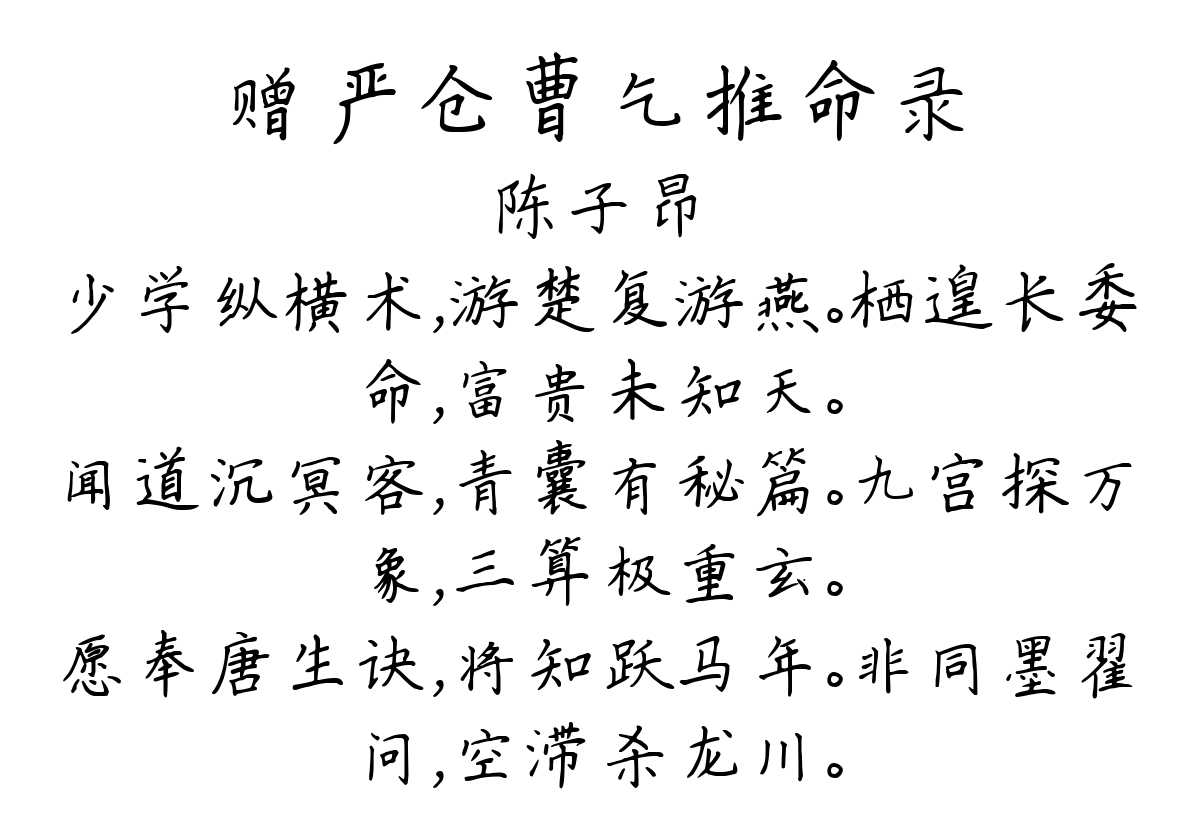 赠严仓曹乞推命录
陈子昂
少学纵横术,游楚复游燕。栖遑长委
命,富贵未知天。
闻道沉冥客,青囊有秘篇。九宫探万
象,三算极重玄。
愿奉唐生诀,将知跃马年。非同墨翟
问,空滞杀龙川。